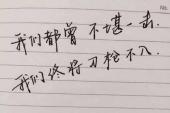 我们都曾不堪一击.
我们终将刀枪不入.